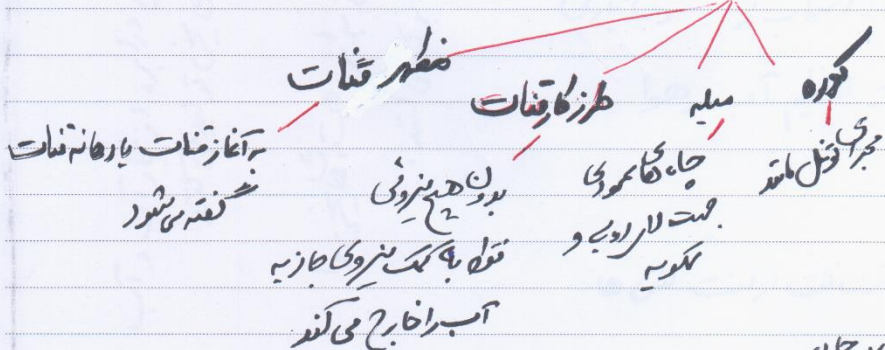 کوره
مجرای تونل مانند
میله
چاه های عمودی
جهت لایروبی و
تهویه
طرز کار قنات
بدون هیچ نیروئی
فقط به کمک نیروی جاذبه
آب را خارج می کند
مظهر قنات
به آغاز قنات یا دهانه قنات
گفته می شود